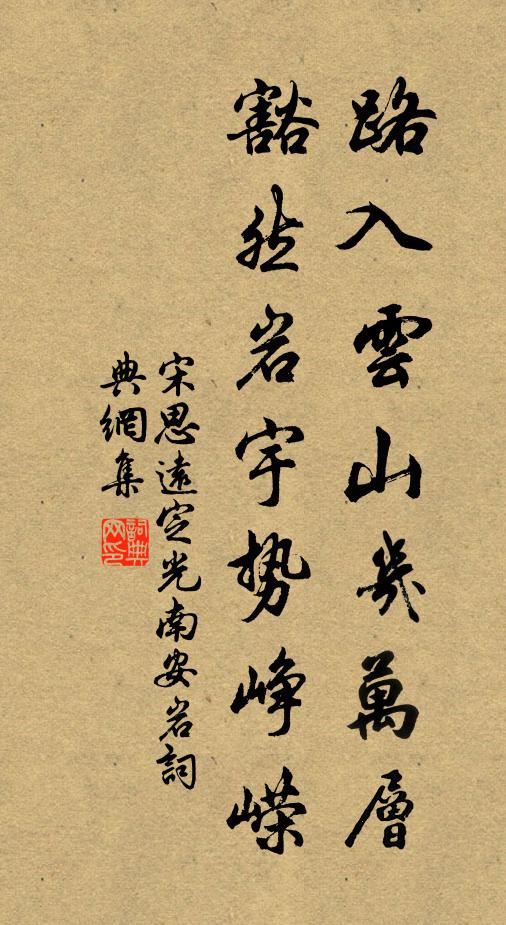 路入雲山幾萬層
豁然岩宇勢峥嶸
宋思遠定光南安岩詞
典網集
詞典网印